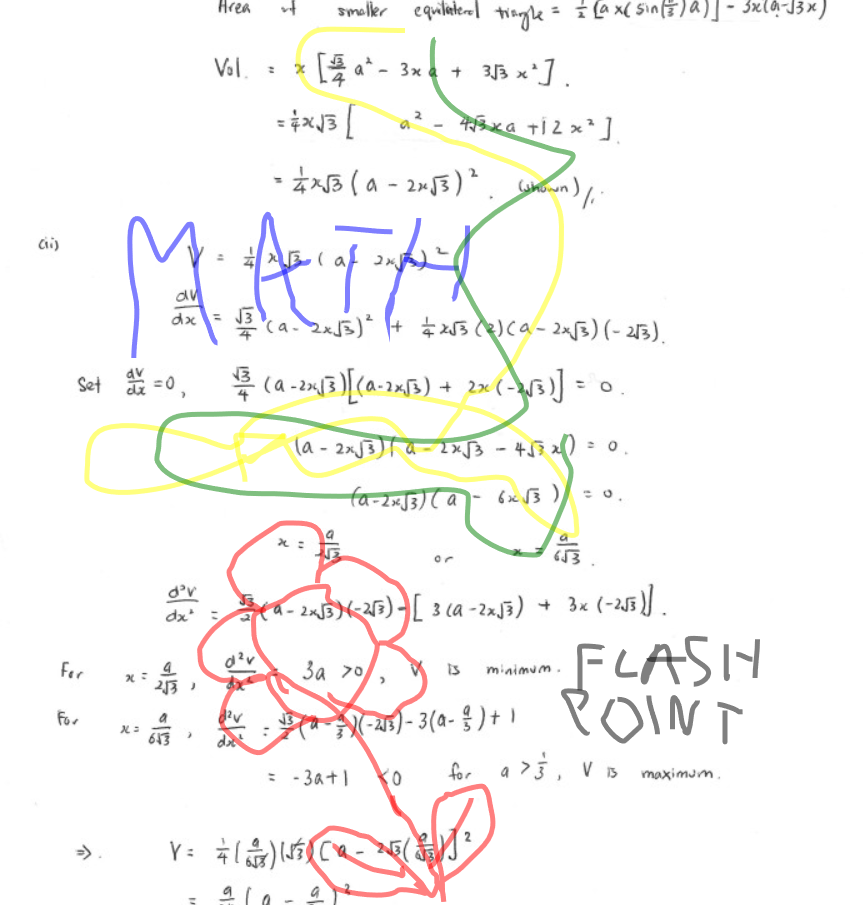 Area of smaller equilateral triangle = ½ [a x (sin(π/3) a)] - 3x(a-√3x)
Vol. = x [√3/4 a² - 3xa + 3√3 x²].
= ¼x√3 [ a² - 4√3xa + 12x²].
= ¼x√3 (a - 2x√3)². (shown)
(ii)
V = ¼ x√3 (a - 2x√3)²
MATH
dV/dx = √3/4 (a - 2x√3)² + ¼x√3 (2)(a - 2x√3)(-2√3).
Set dV/dx = 0, √3/4 (a-2x√3)[(a-2x√3) + 2x(-2√3)] = 0.
(a - 2x√3)(a - 2x√3 - 4√3x) = 0.
(a-2x√3)(a - 6x√3) = 0.
x = a/2√3 or x = a/6√3.
d²V/dx² = √3/2 (a - 2x√3)(-2√3) - [3(a-2x√3) + 3x(-2√3)].
For x = a/2√3, d²V/dx² = 3a >0, V is minimum.
FLASH
POINT
For x = a/6√3, d²V/dx² = √3/2 (a - a/3)(-2√3) - 3(a - a/3) + 1
= -3a+1 <0 for a > 1/3, V is maximum.
⇒. V = ¼ (a/6√3)(√3) [a - 2√3(a/6√3)]²